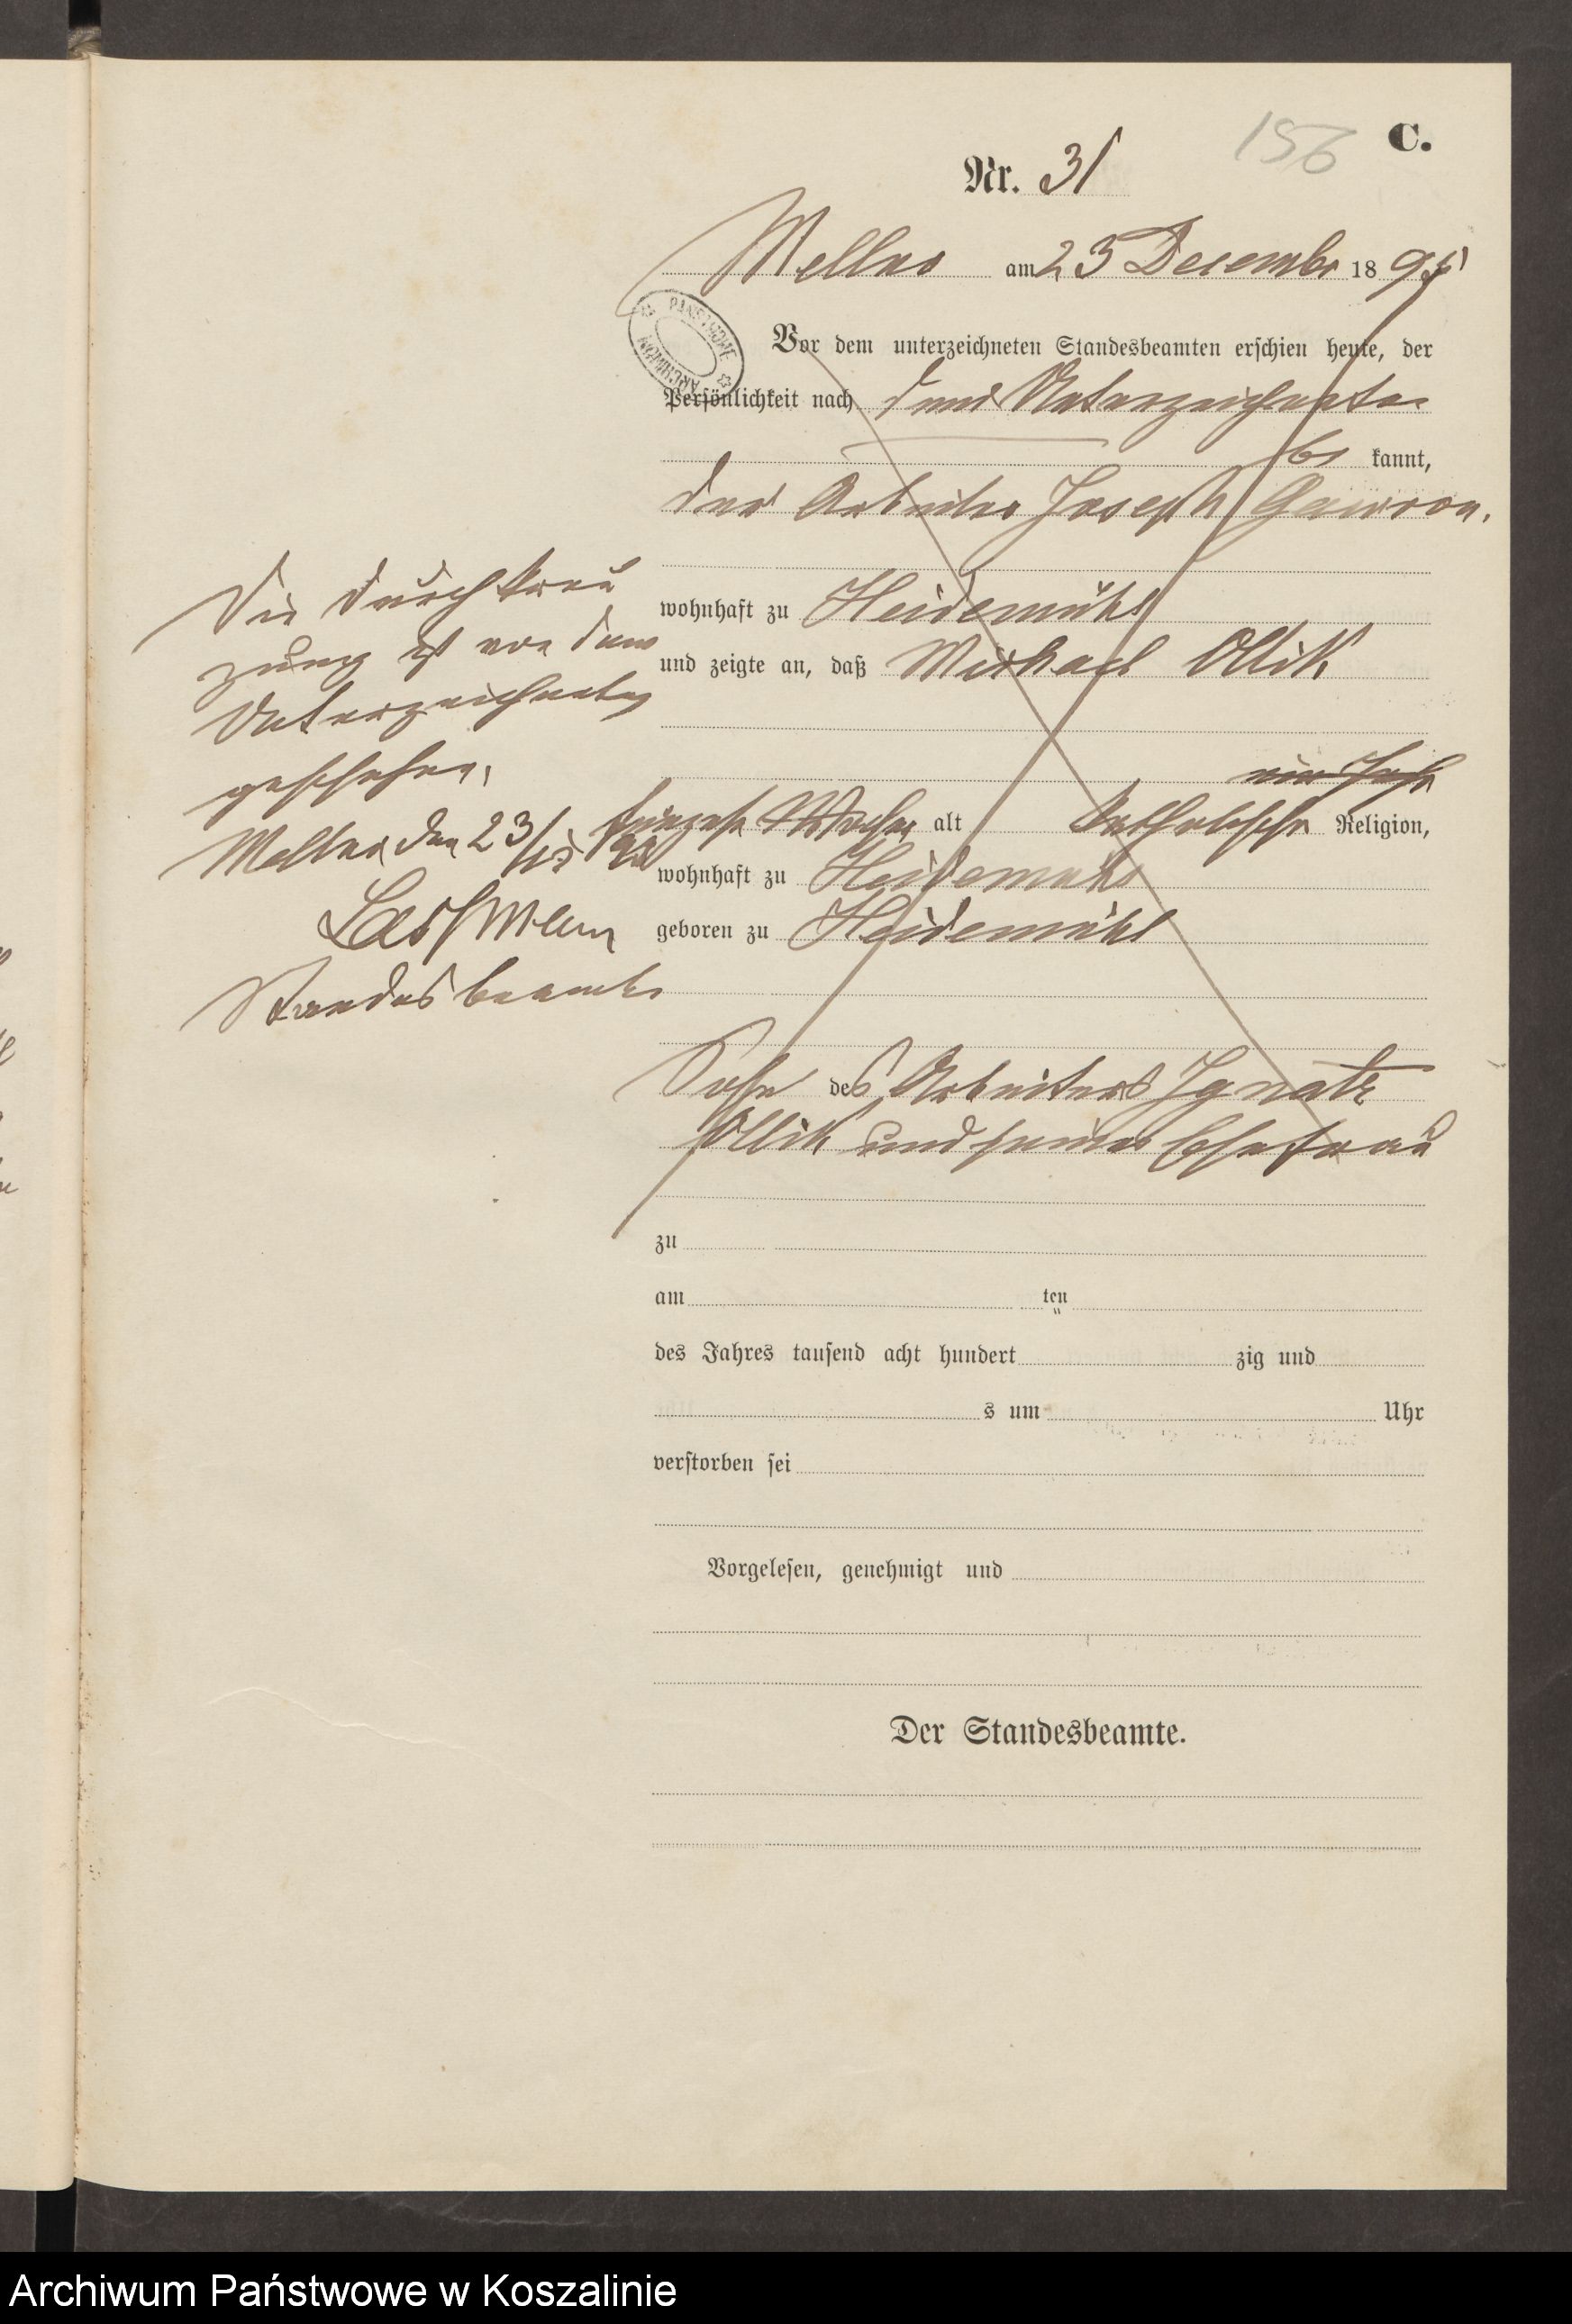 156
C.
Nr. 31
Meller am 23 December 1895
Vor dem unterzeichneten Standesbeamten erschien heute, der
Persönlichkeit nach dem Unterzeichneten
be kannt,
der Arbeiter Joseph Gawron.
wohnhaft zu Heidemühl
und zeigte an, daß Michael Ollik
ein Jahr
fünzehn Wochen alt katholischer Religion,
wohnhaft zu Heidemühl
geboren zu Heidemühl
Sohn des Arbeiters Ignatz
Ollik und seiner Ehefrau
zu
am ten
des Jahres tausend acht hundert zig und
s um Uhr
verstorben sei
Vorgelesen, genehmigt und
Der Standesbeamte.
Die Durchkreu
zung ist von dem
Unterzeichneten
geschehen.
Meller, den 23/12 95
Standesbeamter
PAŃSTWOWE ARCHIWUM
Archiwum Państwowe w Koszalinie